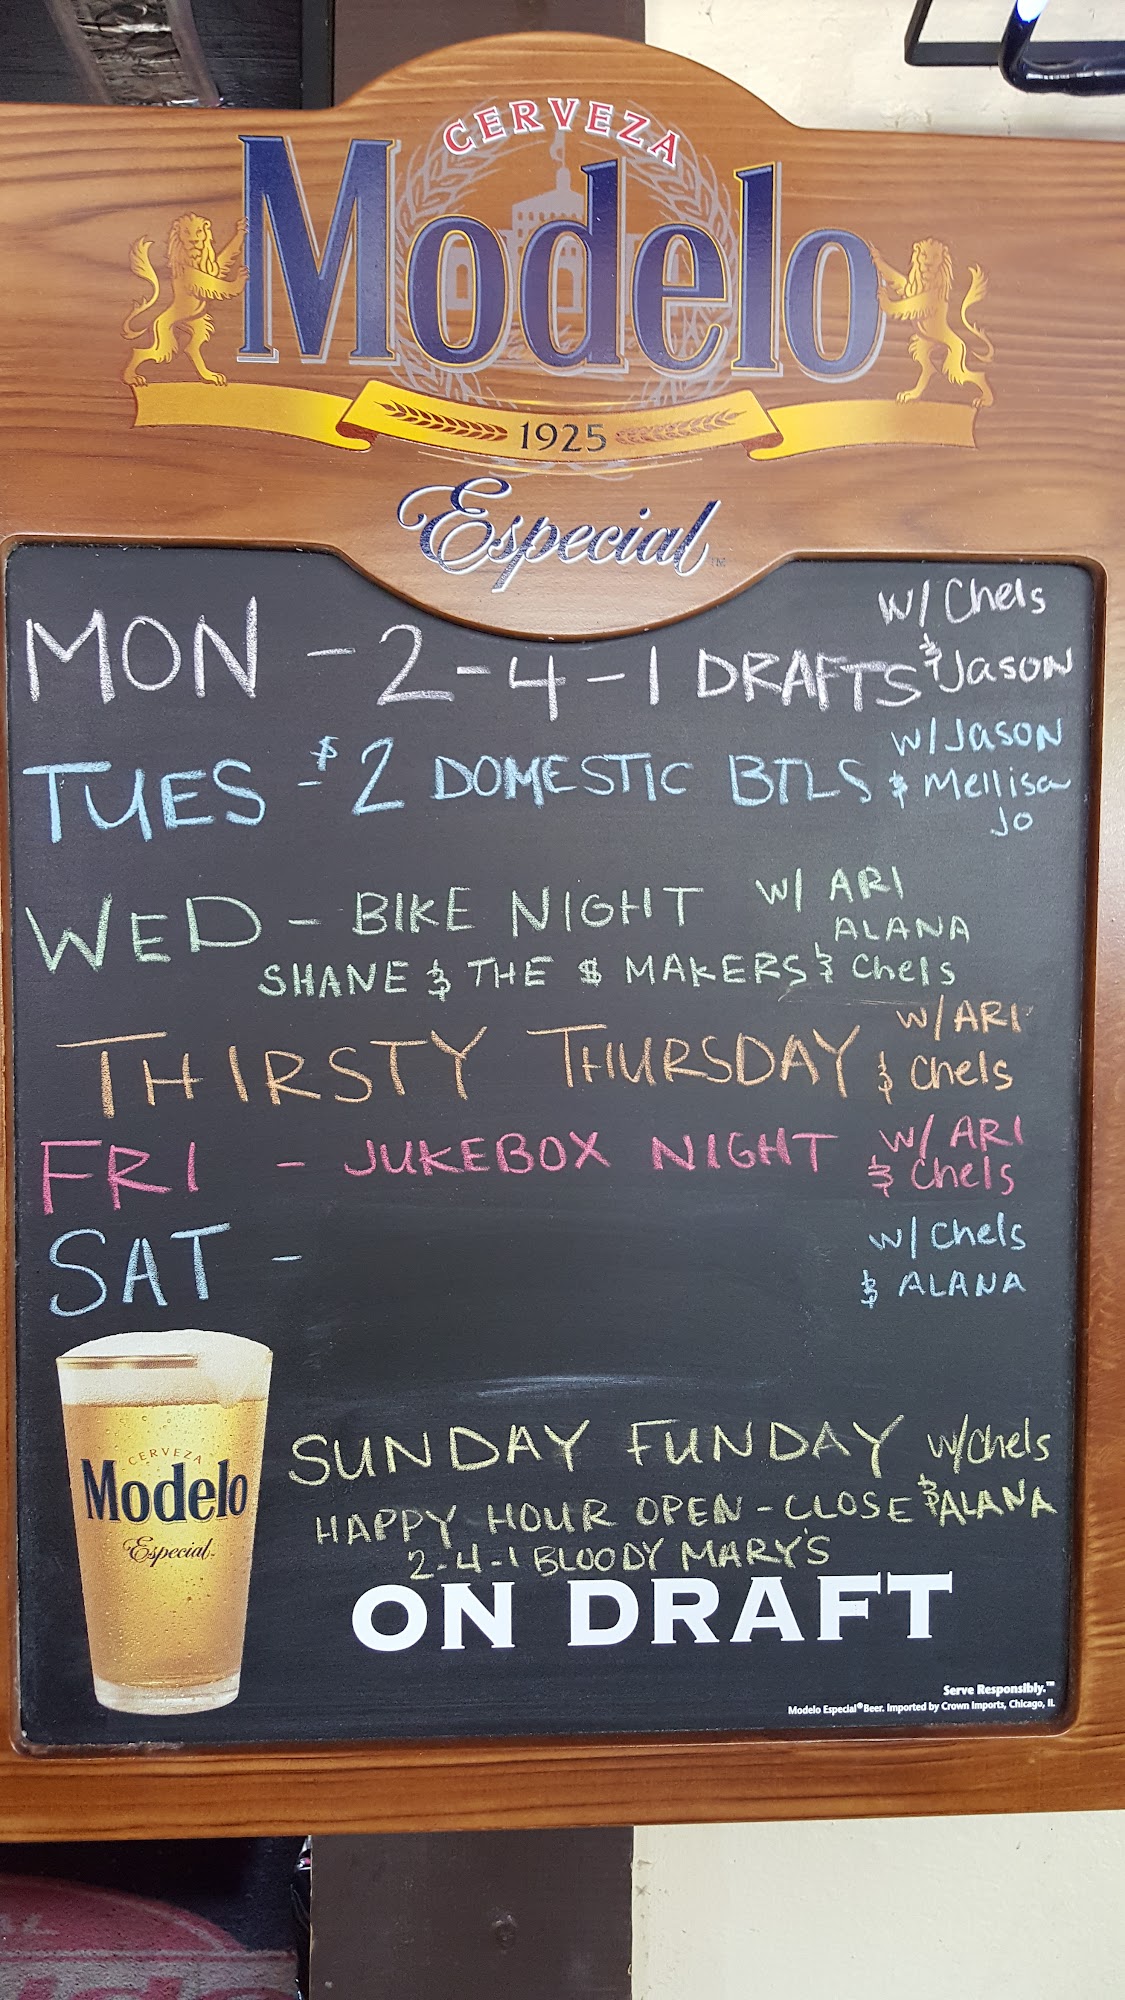 CERVEZA
Modelo
1925
Especial™
MON - 2-4-1 DRAFTS w/ Chels
& Jason
TUES - $2 DOMESTIC BTLS w/ Jason
& Mellisa
Jo
WED - BIKE NIGHT w/ ARI
ALANA
SHANE & THE $ MAKERS & Chels
THIRSTY THURSDAY w/ ARI
& Chels
FRI - JUKEBOX NIGHT w/ ARI
& Chels
SAT - w/ Chels
& ALANA
CERVEZA
Modelo
Especial
SUNDAY FUNDAY w/ Chels
HAPPY HOUR OPEN - CLOSE & ALANA
2-4-1 BLOODY MARY'S
ON DRAFT
Serve Responsibly.™
Modelo Especial® Beer. Imported by Crown Imports, Chicago, IL